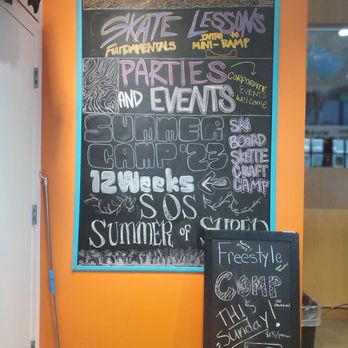 SKATE LESSONS
FUNDAMENTALS
INTRO TO
MINI-RAMP
PARTIES
AND EVENTS
CORPORATE
EVENTS
WELCOME
SUMMER
CAMP '23
12 Weeks
SKI
BOARD
SKATE
CRAFT
CAMP
SOS
SUMMER OF
Freestyle
COMP
THIS
Sunday!